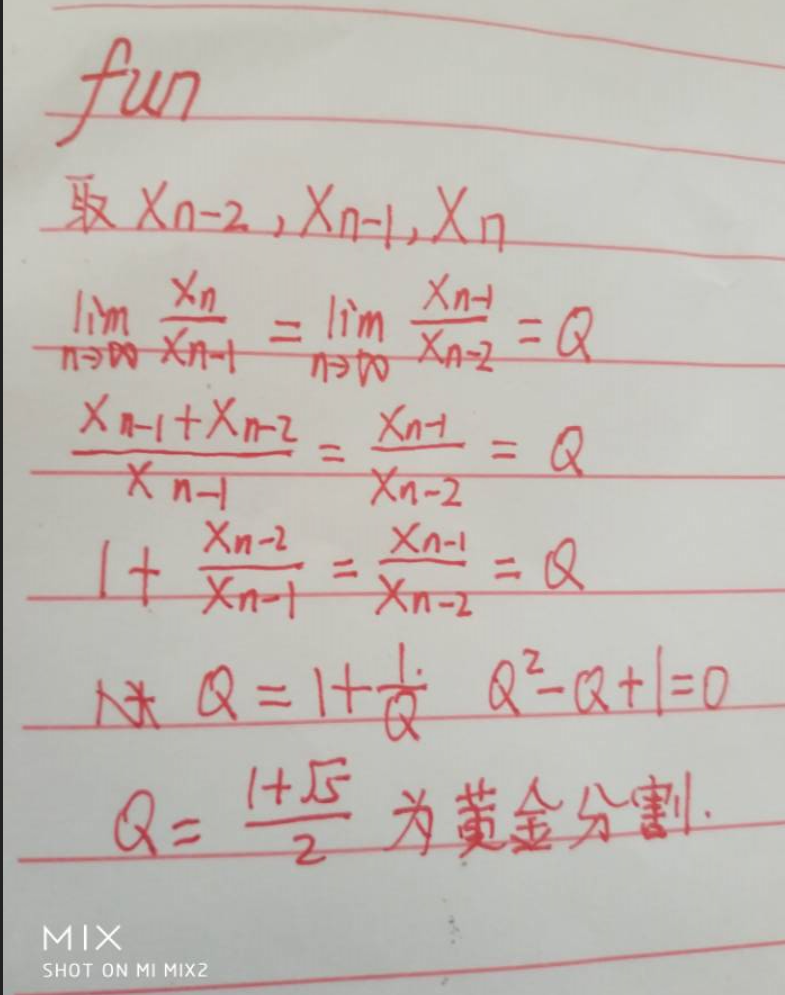 fun
取 Xn-2, Xn-1, Xn
lim n→∞ Xn/Xn-1 = lim n→∞ Xn-1/Xn-2 = Q
(Xn-1+Xn-2)/Xn-1 = Xn-1/Xn-2 = Q
1+ Xn-2/Xn-1 = Xn-1/Xn-2 = Q
Q = 1+1/Q Q²-Q+1=0
Q = (1+√5)/2 为黄金分割.
MIX
SHOT ON MI MIX2